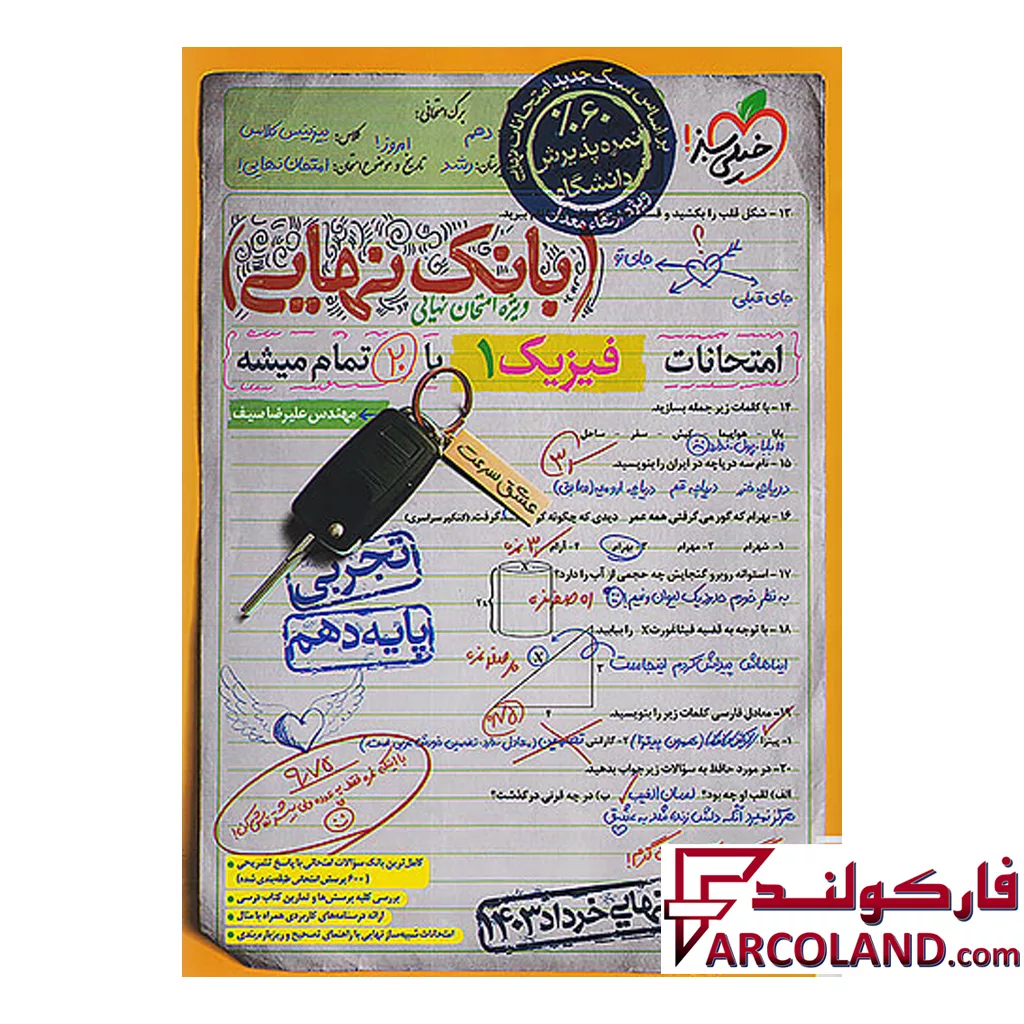 خیلی سبز!
بر اساس سبک جدید امتحانات نهایی
۶۰٪
نمره پذیرش
دانشگاه
ویژه ارتقاء معدل
برگ امتحانی:
دهم
کلاس: بیزینس کلاس
رشد
امروز!
تاریخ و موضوع امتحان: امتحان نهایی!
۱۳ - شکل قلب را بکشید و
ببرید.
جای تو
؟
جای قبلی
(بانک نهایی)
ویژه امتحان نهائی
امتحانات فیزیک ۱ با ۲۰ تمام میشه
مهندس علیرضا سیف
۱۴ - با کلمات زیر جمله بسازید.
بابا - هواپیما - کیش - سفر - ساحل
بابا پول نداره
۳
۱۵ - نام سه دریاچه در ایران را بنویسید.
دریاچه خزر دریاچه قم دریاچه ارومیه (سابق)
۱۶ - بهرام که گور می گرفتی همه عمر دیدی که چگونه گور گرفت: (کنکور سراسری)
۱- شهرام ۲- مهرام ۳- بهرام ۴- آرام
۳ نمره
۱۷ - استوانه روبرو گنجایش چه حجمی از آب را دارد؟
به نظر خودم
X
۲x
۱۸ - با توجه به قضیه فیثاغورث X را بیابید.
ایناهاش پیداش کردم اینجاست
X
۳
۴
عشق سرعت
تجربی
پایه دهم
۱۹ - معادل فارسی کلمات زیر را بنویسید.
۱- پیتزا
۲- گارانتی تضمین
۹/۷۵
۲۰ - در مورد حافظ به سؤالات زیر جواب بدهید.
الف) لقب او چه بود؟ لسان الغیب ب) در چه قرنی درگذشت؟
هرگز نمیرد آنکه دلش زنده شد به عشق
۹/۷۵
کامل ترین بانک سؤالات امتحانی با پاسخ تشریحی
(۶۰۰ پرسش امتحانی طبقه بندی شده)
بررسی کلیه پرسش ها و تمارین کتاب درسی
ارائه درسنامه های کاربردی همراه با مثال
امتحانات شبیه ساز نهایی با راهنمای تصحیح و ریز بارم بندی
نهایی خرداد ۱۴۰۳
فارکولند
FARCOLAND.com